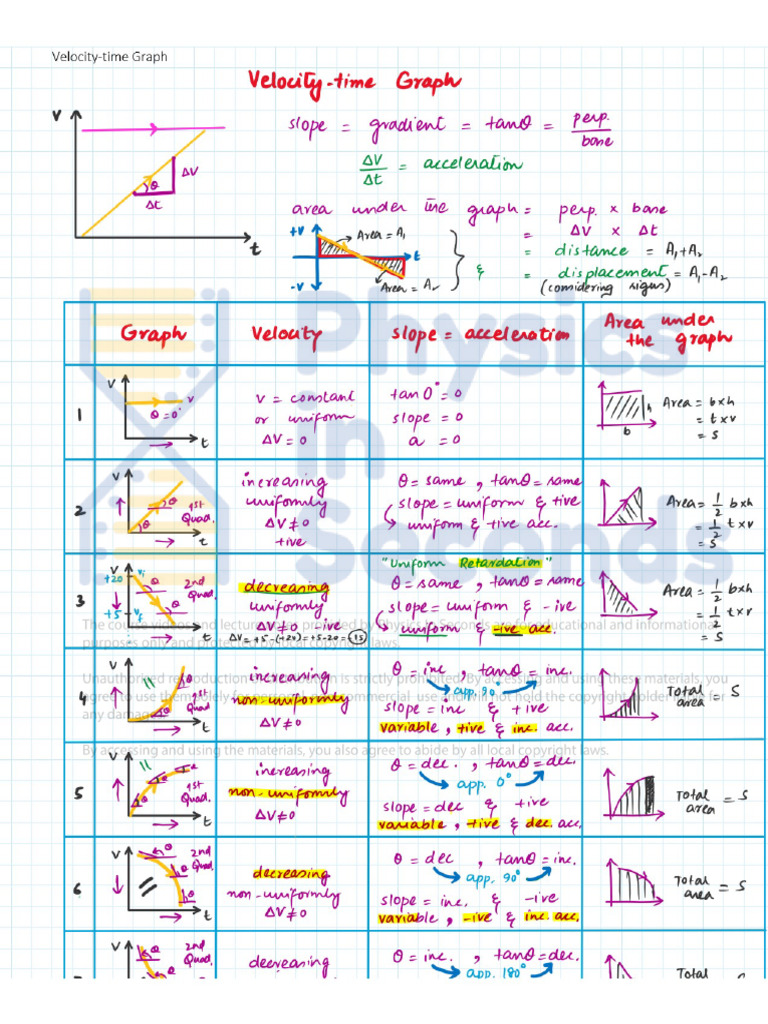 Velocity-time Graph
Velocity-time Graph
V
slope = gradient = tanθ = perp. / base
θ
ΔV
Δt
t
ΔV / Δt = acceleration
area under the graph = perp. × base
= ΔV × Δt
+V
Area = A₁
t
-V
Area = A₂
= distance = A₁+A₂
& = displacement = A₁-A₂
(considering signs)
Physics
in
Seconds
Graph
Velocity
slope = acceleration
Area under
the graph
1
V
V
θ=0°
t
V = constant
or uniform
ΔV = 0
tan 0° = 0
slope = 0
a = 0
h
b
Area = b×h
= t×v
= S
2
V
θ
θ
1st
Quad.
t
increasing
uniformly
ΔV ≠ 0
+ive
θ = same , tanθ = same
slope = uniform & +ive
uniform & +ive acc.
Area = 1/2 b×h
= 1/2 t×v
= S
3
V
+20
Vi
+5
Vf
θ
θ
2nd
Quad.
t
decreasing
uniformly
ΔV ≠ 0 -ive
ΔV = +5-(+20) = +5-20 = -15
"Uniform Retardation"
θ = same , tanθ = same
slope = uniform & -ive
uniform & -ive acc.
Area = 1/2 b×h
= 1/2 t×v
= S
The course videos and lecture notes provided by Physics in Seconds are for educational and informational
purposes only and protected by local copyright laws.
Unauthorised reproduction or distribution is strictly prohibited. By accessing and using these materials, you
agree to use them solely for personal, non-commercial use and will not hold the copyright holder liable for
any damages.
By accessing and using the materials, you also agree to abide by all local copyright laws.
4
V
θ
θ
1st
Quad.
t
increasing
non-uniformly
ΔV ≠ 0
θ = inc , tanθ = inc.
app. 90°
slope = inc & +ive
variable, +ive & inc. acc.
Total
area = S
5
V
θ
θ
θ
1st
Quad.
t
increasing
non-uniformly
ΔV ≠ 0
θ = dec. , tanθ = dec.
app. 0°
slope = dec & +ive
variable, +ive & dec. acc.
Total
area = S
6
V
θ
θ
θ
2nd
Quad.
t
decreasing
non-uniformly
ΔV ≠ 0
θ = dec , tanθ = inc.
app. 90°
slope = inc. & -ive
variable, -ive & inc. acc.
Total
area = S
V
θ
θ
2nd
Quad.
decreasing
θ = inc. , tanθ = dec.
app. 180°
Total